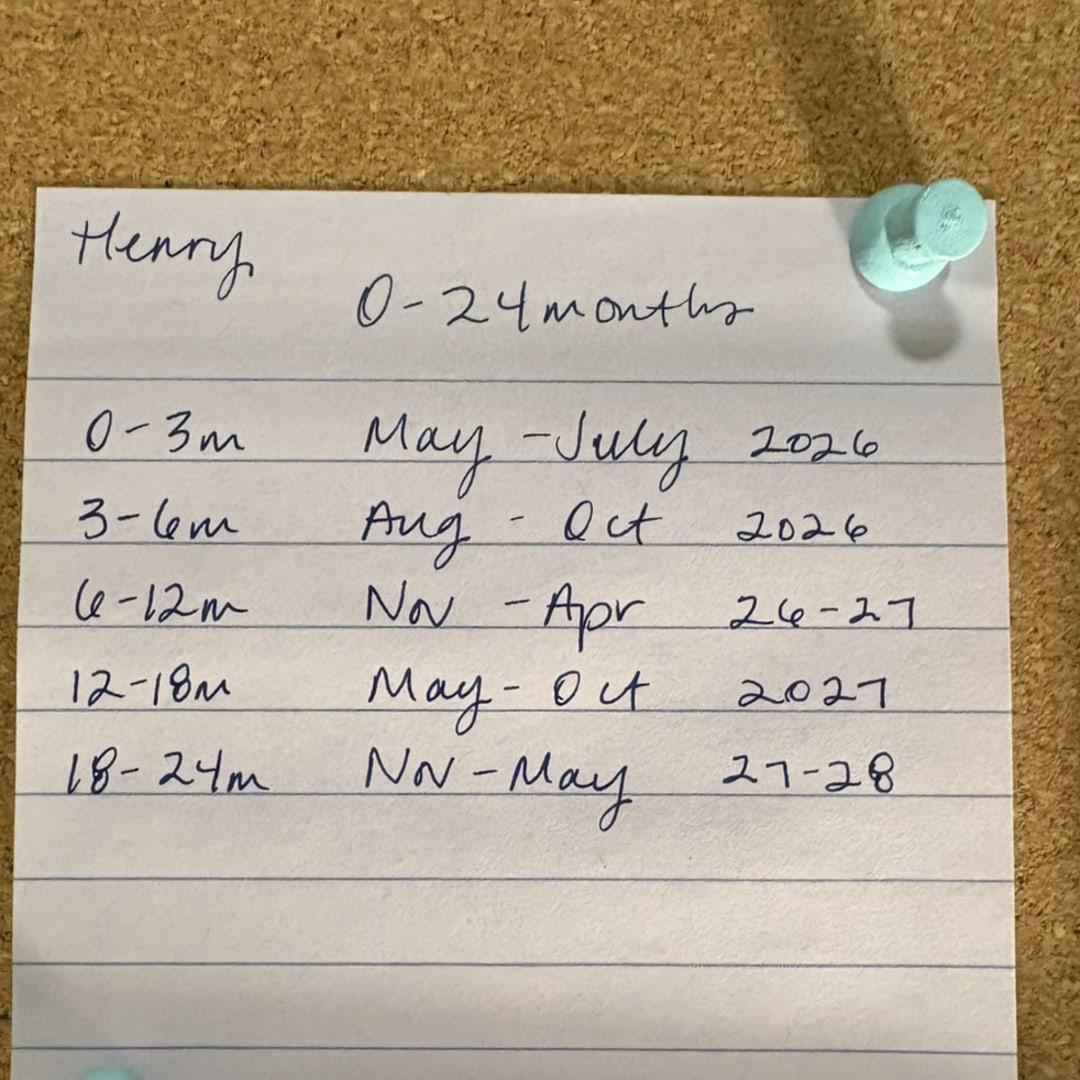 Henry
0-24 months
0-3m May - July 2026
3-6m Aug - Oct 2026
6-12m Nov - Apr 26-27
12-18m May - Oct 2027
18-24m Nov - May 27-28